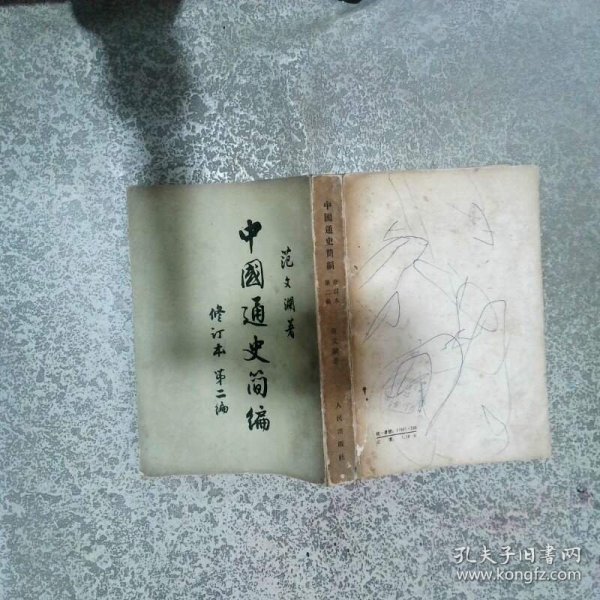 范文瀾著
中國通史简编
修订本 第二编
中國通史簡編
修訂本
第二編
范文瀾著
人民出版社
孔夫子旧书网
www.kongfz.com